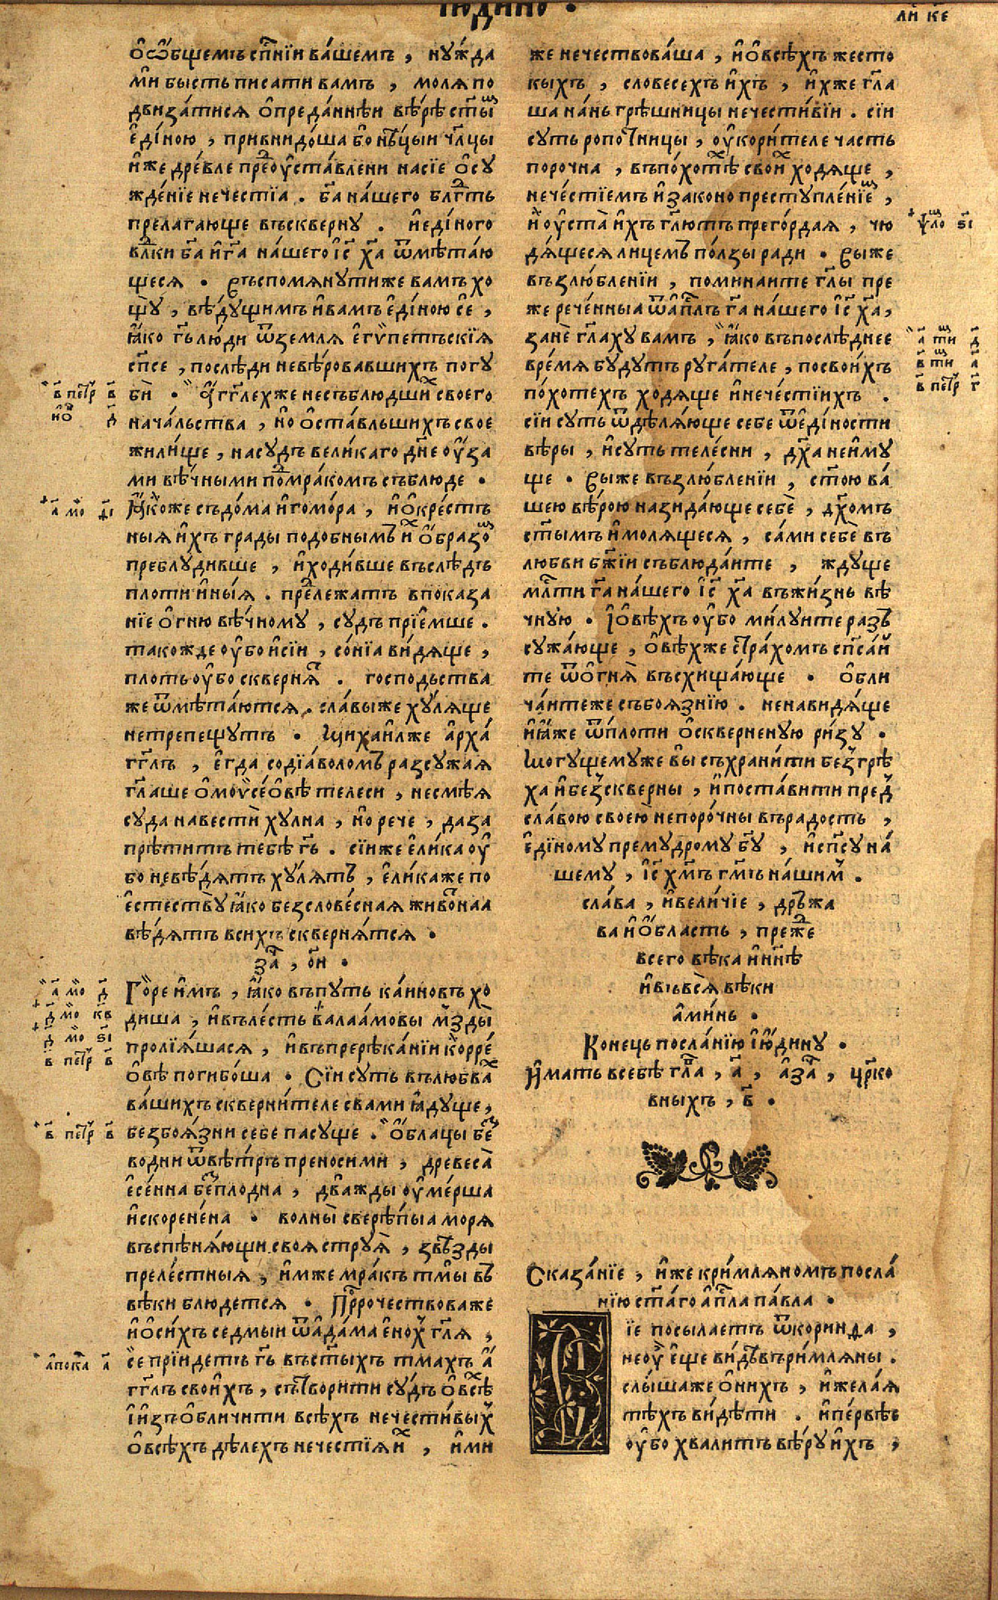 Іюдино .
ли́ к҃е
ѻ҆ ѻ҆́бщемъ сп҃нїи ва́шемъ , ну́жда
ми бысть писати вамъ , моля по
двиза́тися ѻ҆ преда́ннѣи вѣ́рѣ ст҃ы
є҆ді́ною , привнидо́ша бо нѣ́цыи чл҃цы
и҆же дре́вле преѹ҆ста́влени на сїе ѻ҆су
жде́нїе нечестїа . ба҃ на́шего блгⷣть
прелагающе въ скверну . и҆ еди́ного
влⷣки ба҃ и҆ га҃ на́шего і҆с҃ ха҃ ѿмѣта́ю
щеся . Въспомянути же вамъ хо
щу̀ , вѣ́дущимъ и҆ вамъ є҆ді́ною се ,
ꙗ҆́ко гь҃ лю́ди ѿ земля є҆гѵ́петъскїя
сп҃се , послѣ́ди невѣ́ровавшихъ погу
бѝ . а҆́гг҃лех же несъблю́дших своего
нача́льства , но ѻ҆ста́вльшихъ свое
жили́ще , на судъ вели́каго дн҃е ѹ҆́за
ми вѣ́чными помра́комъ съблюде .
в҃ петр҃ в҃
Ꙗ҆́коже съдо́ма и҆ гомо́ра , и҆ ѻ҆кре́стъ
а҃ мо҃ді
ныя и҆́хъ грады подобнымъ и҆́х ѻ҆́бразо
преблуди́вше , и҆ ходи́вше въслѣ́дъ
пло́ти и҆ны́я . прележатъ в показа
нїе ѻ҆гню вѣ́чному , судъ прїе́мше .
тако́жде ѹ҆́бо и҆ сїи , со́нїа ви́дяще ,
пло́ть ѹ҆́бо скверня́т . госпо́дьства
же ѿмѣта́ются . сла́вы же ху́ляще
не трепе́щутъ . Михаи́лже а҆рха́
гг҃лъ , є҆гда со дїа́воломъ разсужа́я
гл҃аше ѻ҆ моѵ҆се́ѻ҆вѣ телеси , не смѣ́я
суда̀ навестѝ ху́лна , но рече , да за
прѣти́тъ тебѣ̀ гь҃ . сїи́ же є҆ли́ка ѹ҆́
бо невѣ́дятъ ху́лятъ , є҆ли́ка же по
є҆стеству̀ ꙗ҆́ко безслове́сная живо́тнаа
вѣ́дятъ в сихъ скверня́тся .
за҃ , ѻ҃н .
Го́ре и҆мъ , ꙗ҆́ко въ путь ка́иновъ хо
а҃ мо҃ д҃
диша , и҆ въ ле́сть вала́амовы мзды̀
д҃ мо҃ к҃в
пролїя́шася , и҆ въ пререка́нїи корре́
д҃ мо҃ ѕ҃і
ѻ҆вѣ погибо́ша . Сїи суть въ любва́х
в҃ петр҃ в҃
ва́шихъ скверни́теле с вами ꙗ҆ду́ще ,
без боя́зни себе пасуще . ѻ҆́блацы без
в҃ петр҃ в҃
водни ѿ вѣ́тръ преносими , древеса̀
є҆се́нна безплодна , два́жды ѹ҆ме́рша
и҆скорене́на . волны̀ сверѣ́пыа моря
въспѣня́ющи своя̀ струя̀ , звѣ́зды
преле́стныя , и҆́мже мра́къ тмы въ
вѣки блюде́тся . Прⷪ҇рочествова же
и҆ ѻ҆ си́хъ седмыи ѿ а҆да́ма є҆но́х гл҃я ,
се прїидетъ гь҃ въ ст҃ыхъ тма́хъ а҆́
а҆пока҃ а҃
гг҃лъ свои́хъ , сътвори́ти су́дъ ѻ҆ всѣ́х
і҆ и҆зъѻ҆бличи́ти всѣ́хъ нечести́вых
ѻ҆ всѣ́хъ дѣ́лехъ нече́стїя и҆́х , и҆́ми
же нечествова́ша , и҆ ѻ҆ всѣ́хъ жесто
кыхъ , слове́сехъ и҆́хъ , и҆́хже гл҃а
ша на́нь грѣ́шницы нечести́вїи . сїи
суть ропотницы , ѹ҆кори́теле часть
порочна , въ по́хотех свои́х ходяще ,
нече́стїемъ и҆ законо преступле́нїе ,
и҆ ѹ҆ста̀ и҆́хъ гл҃ютъ прего́рдая , чю
ѱло ѕ҃і
дя́щеся лицемъ по́лзы ради . Вы же
възлю́бленїи , поминаите гл҃ы пре
же рече́нныа ѿ а҆п҃лъ га҃ нашего і҆с҃ ха҃ ,
занѐ гл҃аху вамъ , ꙗ҆́ко въ послѣ́днее
вре́мя бу́дутъ руга́теле , по свои́хъ
по́хотехъ ходяще и҆ нече́стїихъ .
в҃ петр҃ г҃
сїи суть ѿдѣля́юще себе ѿ є҆ди́ности
вѣры , и҆ суть теле́сни , дх҃а не и҆му
ще . Вы же възлю́бленїи , ст҃ою ва́
шею вѣ́рою назида́юще себѐ , дх҃омъ
ст҃ымъ и҆ моля́щеся , са́ми себе въ
любви бж҃їи съблюда́ите , жду́ще
млⷭ҇ти га҃ на́шего і҆с҃ ха҃ въ жи́знь вѣ́
чную . І҆ ѻ҆вѣ́хъ ѹ҆́бо милуите разъ
сужа́юще , ѻ҆́вѣх же страхомъ сп҃са́и
те ѿ ѻ҆гня̀ въсхища́юще . ѻ҆бли
ча́ите же съ боя́знїю . ненави́дяще
и҆ ꙗ҆́же ѿ пло́ти ѻ҆скверненую ри́зу .
Могу́щему же вы съхрани́ти без грѣ
ха̀ и҆ без скверны , и҆ поста́вити пред
сла́вою своею̀ непоро́чны въ радость ,
є҆ди́ному прему́дрому бг҃у , и҆ сп҃су на́
шему , і҆с҃ хм҃ъ гм҃ъ нашим .
сла́ва , и҆ вели́чїе , дръжа
ва и҆ ѻ҆́бласть , преⷤже
всего вѣка и҆ нн҃ѣ
и҆ въ вся̀ вѣки
а҆ми́нь .
Конець посла́нїю і҆ю҆́дину .
И҆́мать в себѣ̀ гл҃а , а҃ , а҆ за҃ , цр҃ко
вныхъ , в҃ .
Сказа́нїе , и҆́же к ри́мляномъ посла́
нїю ст҃а́го а҆п҃ла па́вла .
їе посыла́етъ ѿ кори́нѳа ,
не ѹ҆̀ є҆ще ви́дѣвъ ри́мляны .
слы́шаже ѻ҆ ни́хъ , и҆ жела́я
тѣ́хъ ви́дѣти . и҆ пе́рвѣе
ѹ҆́бо хвали́тъ вѣ́ру и҆́хъ ,